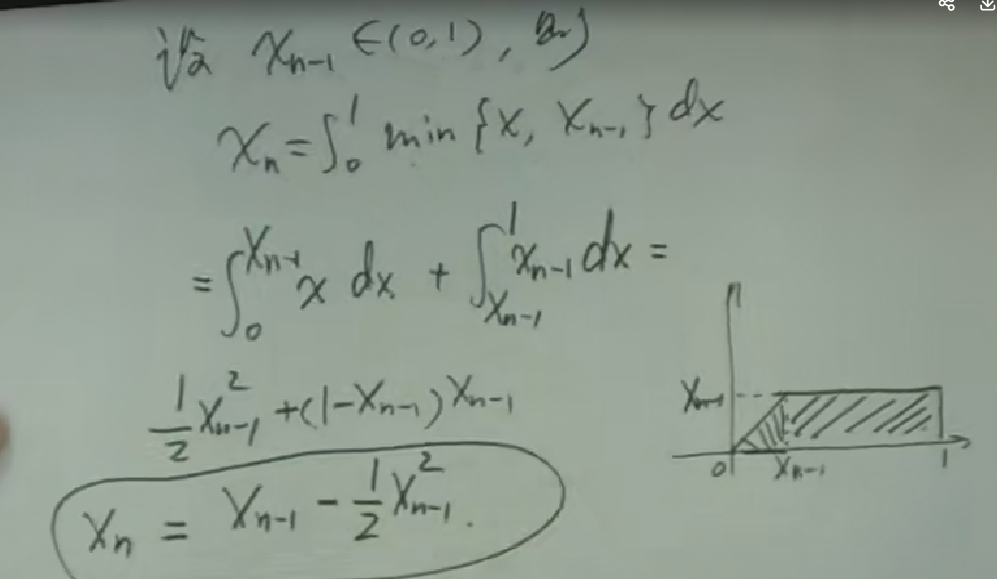 设 Xₙ₋₁ ∈(0,1), 则
Xₙ=∫₀¹ min {x, Xₙ₋₁} dx
=∫₀^(Xₙ₋₁) x dx + ∫_(Xₙ₋₁)^1 Xₙ₋₁ dx =
1/2 Xₙ₋₁² +(1-Xₙ₋₁)Xₙ₋₁
Xₙ = Xₙ₋₁ - 1/2 Xₙ₋₁².
Xₙ₋₁
0 Xₙ₋₁ 1